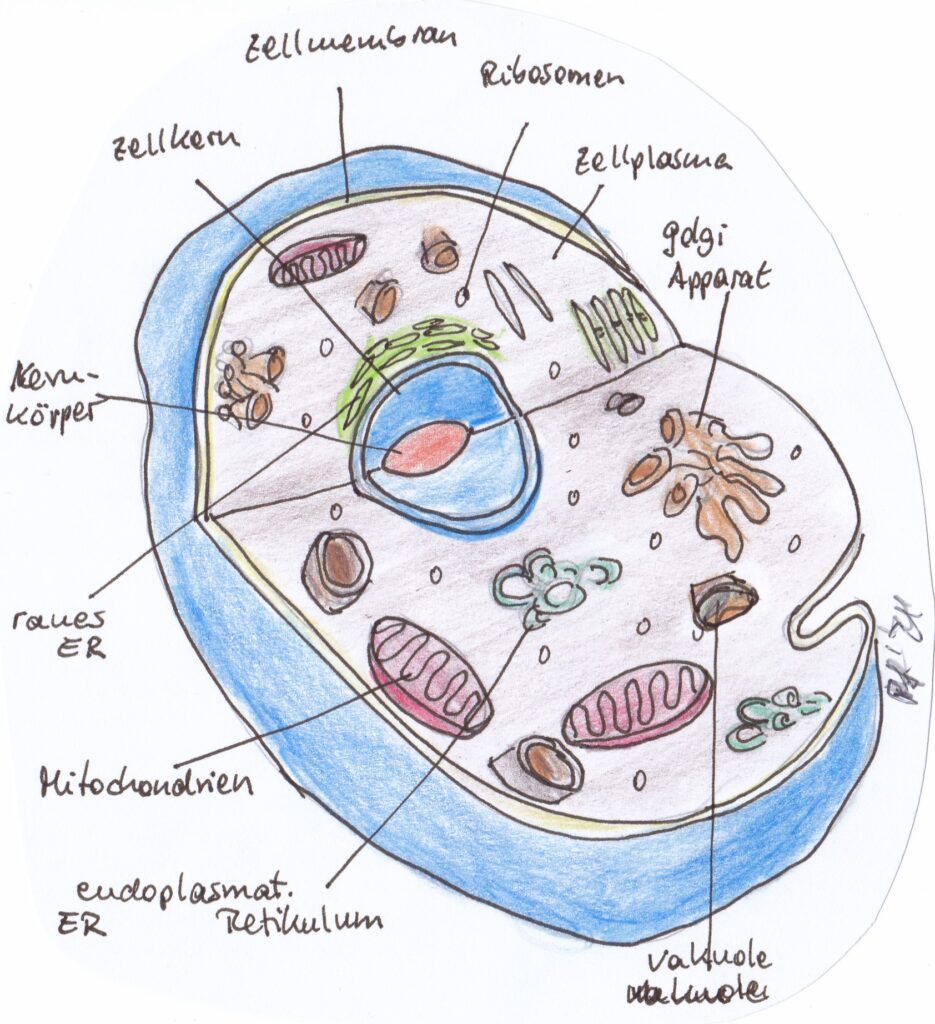 Zellmembran
Ribosomen
Zellkern
Zellplasma
golgi
Apparat
Kern-
körper
raues
ER
Mitochondrien
endoplasmat.
ER Retikulum
Vakuole